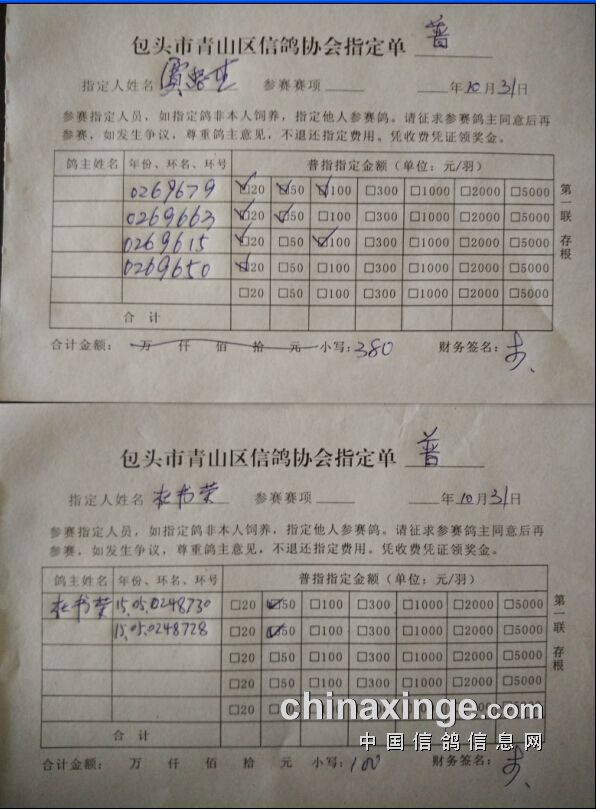 包头市青山区信鸽协会指定单 普
指定人姓名 贾 生 参赛赛项 年10月31日
参赛指定人员,如指定鸽非本人饲养,指定他人参赛鸽。请征求参赛鸽主同意后再
参赛,如发生争议,尊重鸽主意见,不退还指定费用。凭收费凭证领奖金。
鸽主姓名 年份、环名、环号 普指指定金额(单位:元/羽)
0269679 ☑20 ☑50 ☑100 □300 □1000 □2000 □5000
0269663 ☑20 ☑50 □100 □300 □1000 □2000 □5000
0269615 ☑20 □50 ☑100 □300 □1000 □2000 □5000
0269650 ☑20 □50 □100 □300 □1000 □2000 □5000
□20 □50 □100 □300 □1000 □2000 □5000
合 计
第一联 存根
合计金额: 万 仟 佰 拾 元 小写:380 财务签名:
包头市青山区信鸽协会指定单 普
指定人姓名 杜书荣 参赛赛项 年10月31日
参赛指定人员,如指定鸽非本人饲养,指定他人参赛鸽。请征求参赛鸽主同意后再
参赛,如发生争议,尊重鸽主意见,不退还指定费用。凭收费凭证领奖金。
鸽主姓名 年份、环名、环号 普指指定金额(单位:元/羽)
杜书荣 15.05.0248730 □20 ☑50 □100 □300 □1000 □2000 □5000
15.05.0248728 □20 ☑50 □100 □300 □1000 □2000 □5000
□20 □50 □100 □300 □1000 □2000 □5000
□20 □50 □100 □300 □1000 □2000 □5000
□20
合 计
第一联 存根
chinaxinge.com
中国信鸽信息网
合计金额: 万 仟 佰 拾 元 小写:100 财务签名: